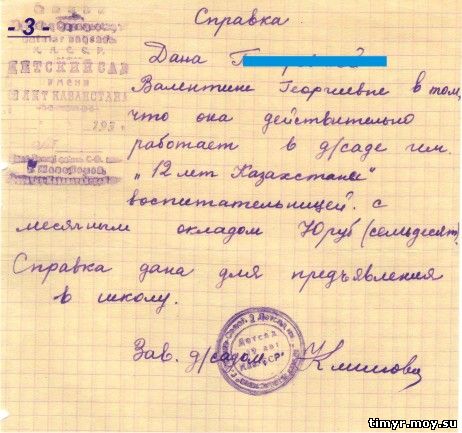 - 3 -
ДЕТСКИЙ САД
ИМЕНИ
ЛЕТ КАЗАХСТАНА
193
Справка.
Дана
Валентине Георгиевне в том,
что она действительно
работает в д/саде им.
"12 лет Казахстана"
воспитательницей. с
месячным окладом 70 руб (семьдесят)
Справка дана для предъявления
в школу.
Зав. д/садом
Детсад
timyr.moy.su